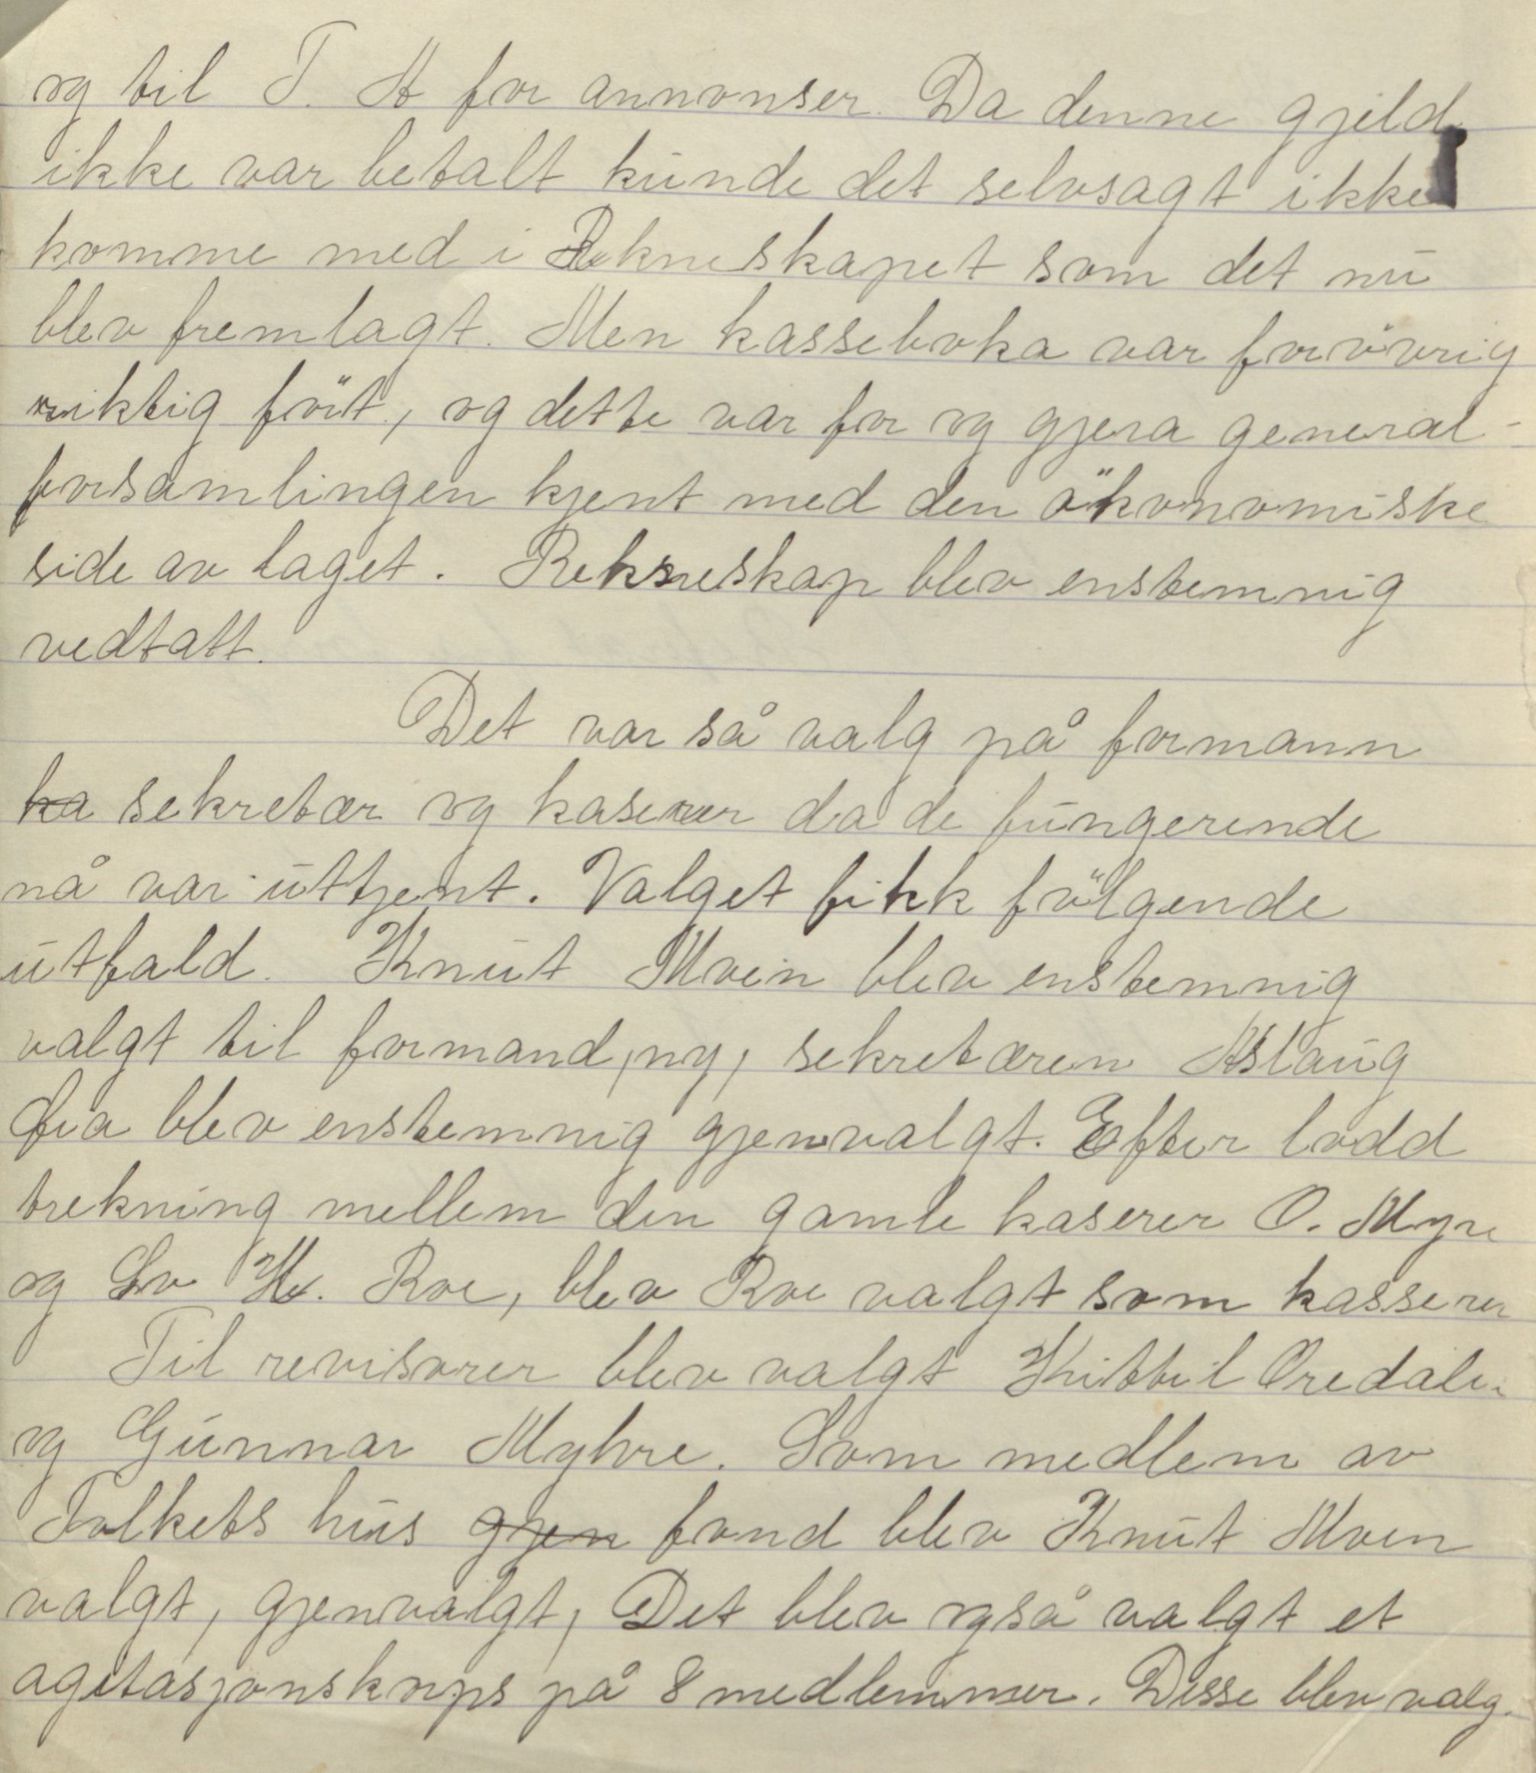 og til T. A for annonser. Da denne gjeld
ikke var betalt kunde det selvsagt ikke
komme med i Rekneskapet som det nu
blev fremlagt. Men kasseboka var forövrig
riktig fört, og dette var for og gjera general-
forsamlingen kjent med den ökonomiske
side av laget. Rekneskap blev enstemmig
vedtatt.
Det var så valg på formann
ka sekretær og kaserer da de fungerende
nå var uttjent. Valget fikk fölgende
utfald. Knut Moen blev enstemmig
valgt til formand, ny, sekretæren Aslaug
Lia blev enstemmig gjenvalgt. Efter lodd
trekning mellem den gamle kaserer O. Myre
og Sv H. Roe, blev Roe valgt som kasserer
Til revisorer blev valgt Kittil Øredalen
og Gunnar Myhre. Som medlem av
Folkets hus gjen fond blev Knut Moen
valgt, gjenvalgt, Det blev også valgt et
agitasjonskorps på 8 medlemmer. Disse blev valg.